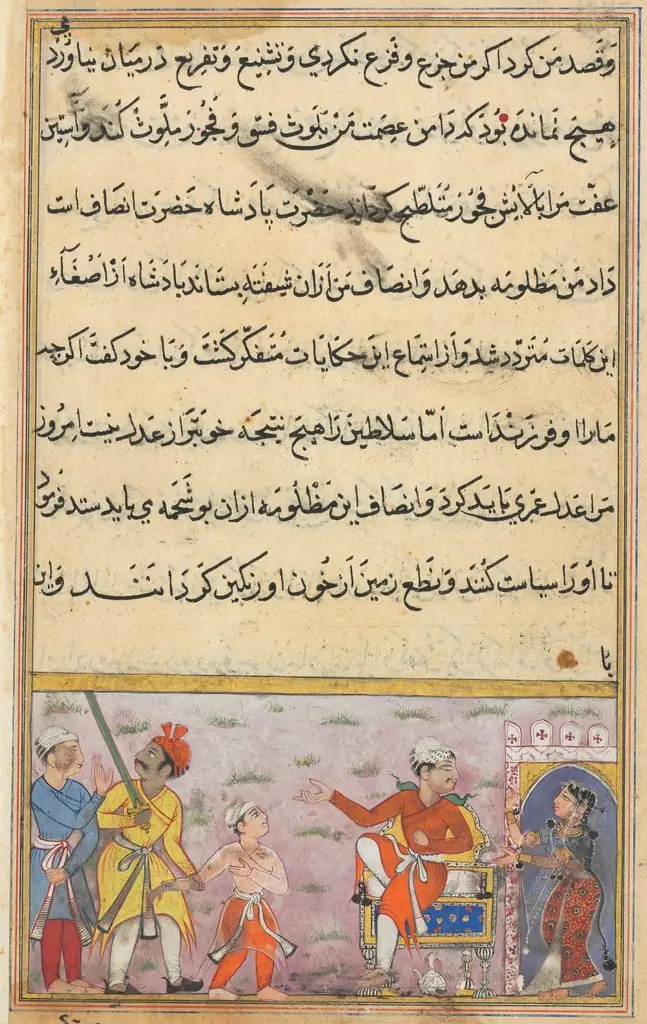 وَقصد مَن کرد اکر من جزع و فزع نکردی وَ تشنیع وَ تفریع درمیان نیاوُرد
هیچ نماندَه بُودَ که دَامن عِصمت مَن بلوث فسق وَ فجُور ملَّوث کنَد وَ آستین
عفّت مَرا بآلایش فجُور مُتلطّخ کردَاند حَضرَت پادشاه حَضرَت انصاف است
دَاد من مظلومَه بدهَد وَ انصاف مَن اَزان شیفتَه بستاند بادشاه اَز اصغَآءِ
این کلمَات مُتردّد شد وَ از استماع این حکایات مُتفکّر کشت وَ با خود کفت اکرچه
مَارا او فرزند است اَمّا سَلاطین رَا هیچ نتیجَه خوبتر از عدل نیست امرُوز
مَرا عدل عمَری بَاید کرد وَ انصاف این مظلُومَه ازان بوشحمَه می باید ستد فرمُود
تا اُو رَا سیاست کُنند وَ نطع زمین اَز خُون او رنکین کردَانند وَ این
با